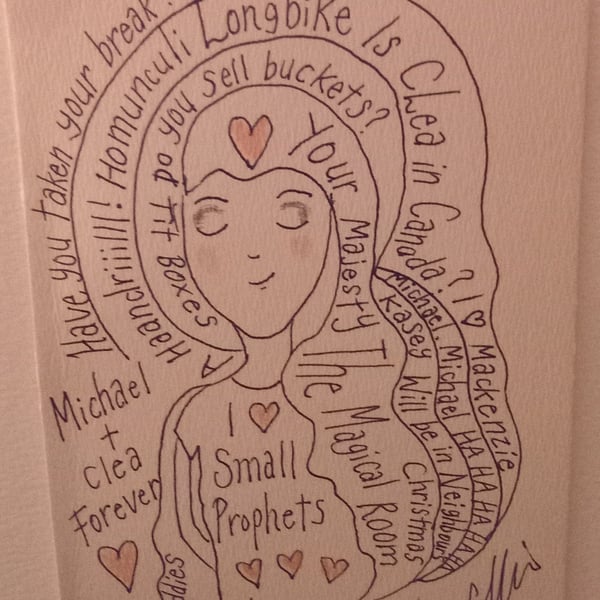 Have you taken your break?
Haandriiilll! Homunculi Longbike Is Clea in Canada? I ♡ Mackenzie
A Tit Boxes Do you sell buckets?
Your Majesty
Michael. Michael HA HA HA HA HA
Kasey Will be in Neighbours
Christmas
The Magical Room
Michael
+
Clea
Forever
I ♡
Small
Prophets